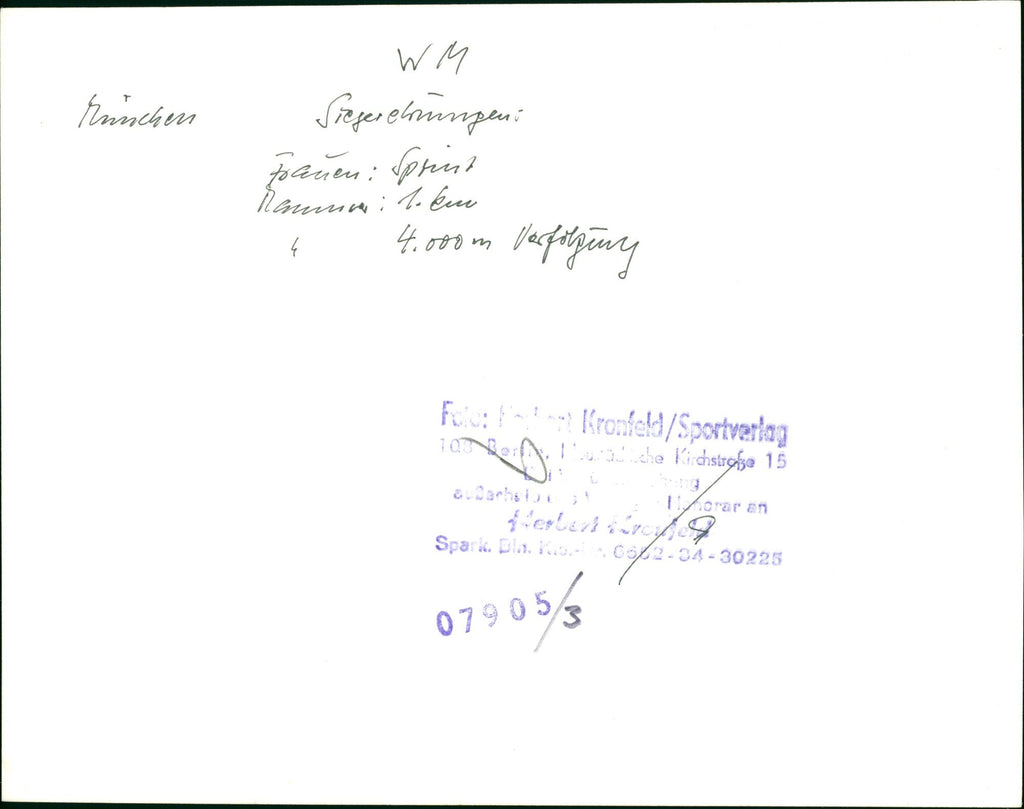 WM
München Siegerehrungen:
Frauen: Sprint
Männer: 1. km
" 4.000 m Verfolgung
Foto: Herbert Kronfeld/Sportverlag
108 Berlin, Kirchstraße 15
außerhalb Honorar an
Herbert Kronfeld
Spark. Bln. Kto.-Nr. 6652-34-30225
07905/3